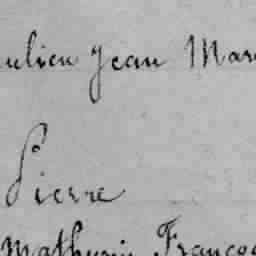 ulien Jean Mar
Pierre
Mathurin Franço